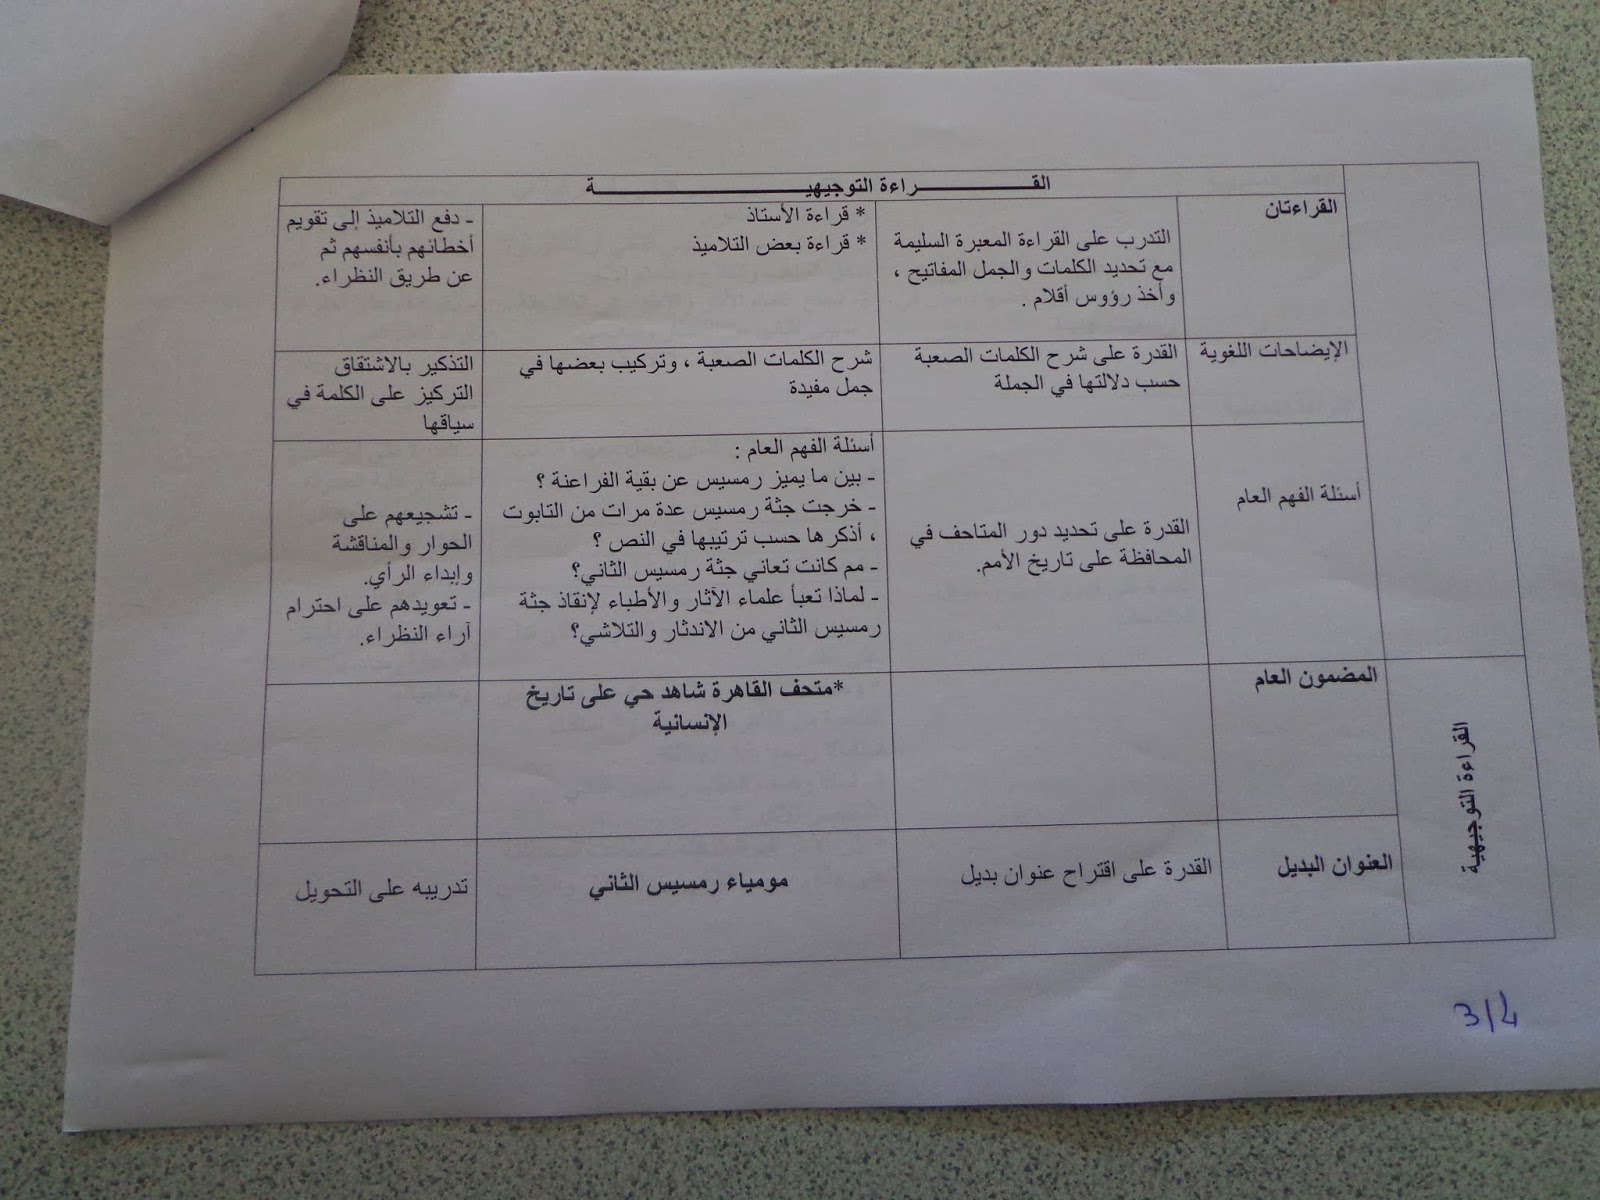 القــراءة التوجيهيــة
القراءتان
التدرب على القراءة المعبرة السليمة
مع تحديد الكلمات والجمل المفاتيح ،
وأخذ رؤوس أقلام .
* قراءة الأستاذ
* قراءة بعض التلاميذ
- دفع التلاميذ إلى تقويم
أخطائهم بأنفسهم ثم
عن طريق النظراء.
الإيضاحات اللغوية
القدرة على شرح الكلمات الصعبة
حسب دلالتها في الجملة
شرح الكلمات الصعبة ، وتركيب بعضها في
جمل مفيدة
التذكير بالاشتقاق
التركيز على الكلمة في
سياقها
أسئلة الفهم العام
القدرة على تحديد دور المتاحف في
المحافظة على تاريخ الأمم.
أسئلة الفهم العام :
- بين ما يميز رمسيس عن بقية الفراعنة ؟
- خرجت جثة رمسيس عدة مرات من التابوت
، أذكرها حسب ترتيبها في النص ؟
- مم كانت تعاني جثة رمسيس الثاني؟
- لماذا تعبأ علماء الأثار والأطباء لإنقاذ جثة
رمسيس الثاني من الاندثار والتلاشي؟
- تشجيعهم على
الحوار والمناقشة
وإبداء الرأي.
- تعويدهم على احترام
آراء النظراء.
القراءة التوجيهية
المضمون العام
*متحف القاهرة شاهد حي على تاريخ
الإنسانية
العنوان البديل
القدرة على اقتراح عنوان بديل
مومياء رمسيس الثاني
تدريبه على التحويل
3/4